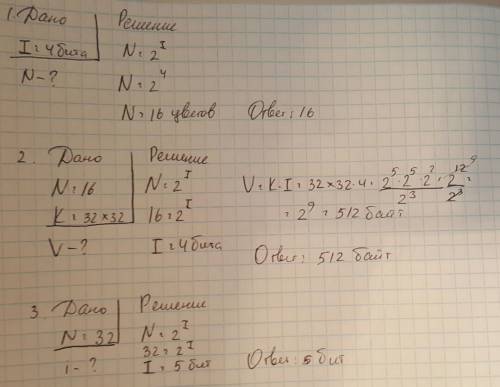 1. Дано Решение
I = 4 бита N = 2^I
N - ? N = 2^4
N = 16 цветов Ответ: 16
2. Дано Решение
N = 16 N = 2^I V = K · I = 32 × 32 · 4 = 2^5 · 2^5 · 2^2 / 2^3 = 2^12 9 / 2^3 =
K = 32 × 32 16 = 2^I = 2^9 = 512 байт
V - ? I = 4 бита Ответ: 512 байт
3. Дано Решение
N = 32 N = 2^I
32 = 2^I
i - ? I = 5 бит Ответ: 5 бит